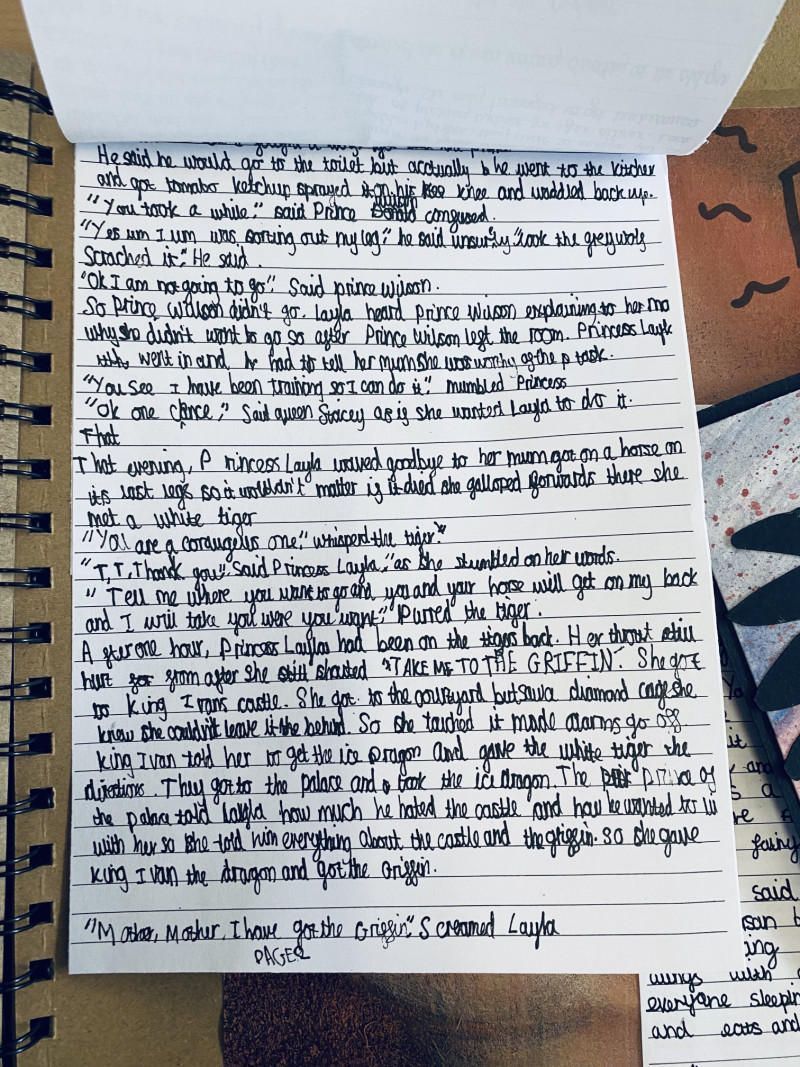 He said he would go to the toilet but acctually he went to the kitchen
and got tomato ketchup sprayed it on his knee and waddled back up.
"You took a while." said Prince congused.
"Yes um I um was sorting out my leg." he said unsurly. "look the grey wolg
Scrached it." He said.
"Ok I am not going to go". Said prince wilson.
So Prince Wilson didn't go. Layla heard Prince Wilson explaining to her mo
why she didn't want to go so after Prince Wilson left the room. Princess Layl
went in and had to tell her mum she was worthy of the task.
"You see I have been training so I can do it." mumbled Princess
"Ok one chnce," Said queen Stacey as if she wanted Layla to do it.
That
That evening, Princess Layla waved goodbye to her mum got on a horse on
its last legs so it wouldn't matter if it died she galloped forwards there she
met a white tiger
"You are a corougeus one." whisperd the tiger."
"T,T,Thank you". Said Princess Layla, "as she stumbled on her words.
"Tell me where you want to go and you and your horse will get on my back
and I will take you were you want," Purred the tiger.
After one hour, Princess Laylas had been on the tigers back. Her throut still
hurt from after she shouted "TAKE ME TO THE GRIFFIN". She got
to King Ivans castle. She got to the courtyard but saw a diamond cage she
knew she couldn't leave it behind. So she touched it made alarms go off.
King Ivan told her to get the ice Dragon and gave the white tiger the
directions. They got to the palace and took the ice dragon. The prince of
the palace told Layla how much he hated the castle and how he wanted to li
with her so she told him everything about the castle and the griffin. So she gave
King Ivan the dragon and got the Griffin.
"Mother, Mother, I have got the Griffin". Screamed Layla
PAGE2
it
and
fairy
said
ing
wings with
everyone sleepin
and eats and